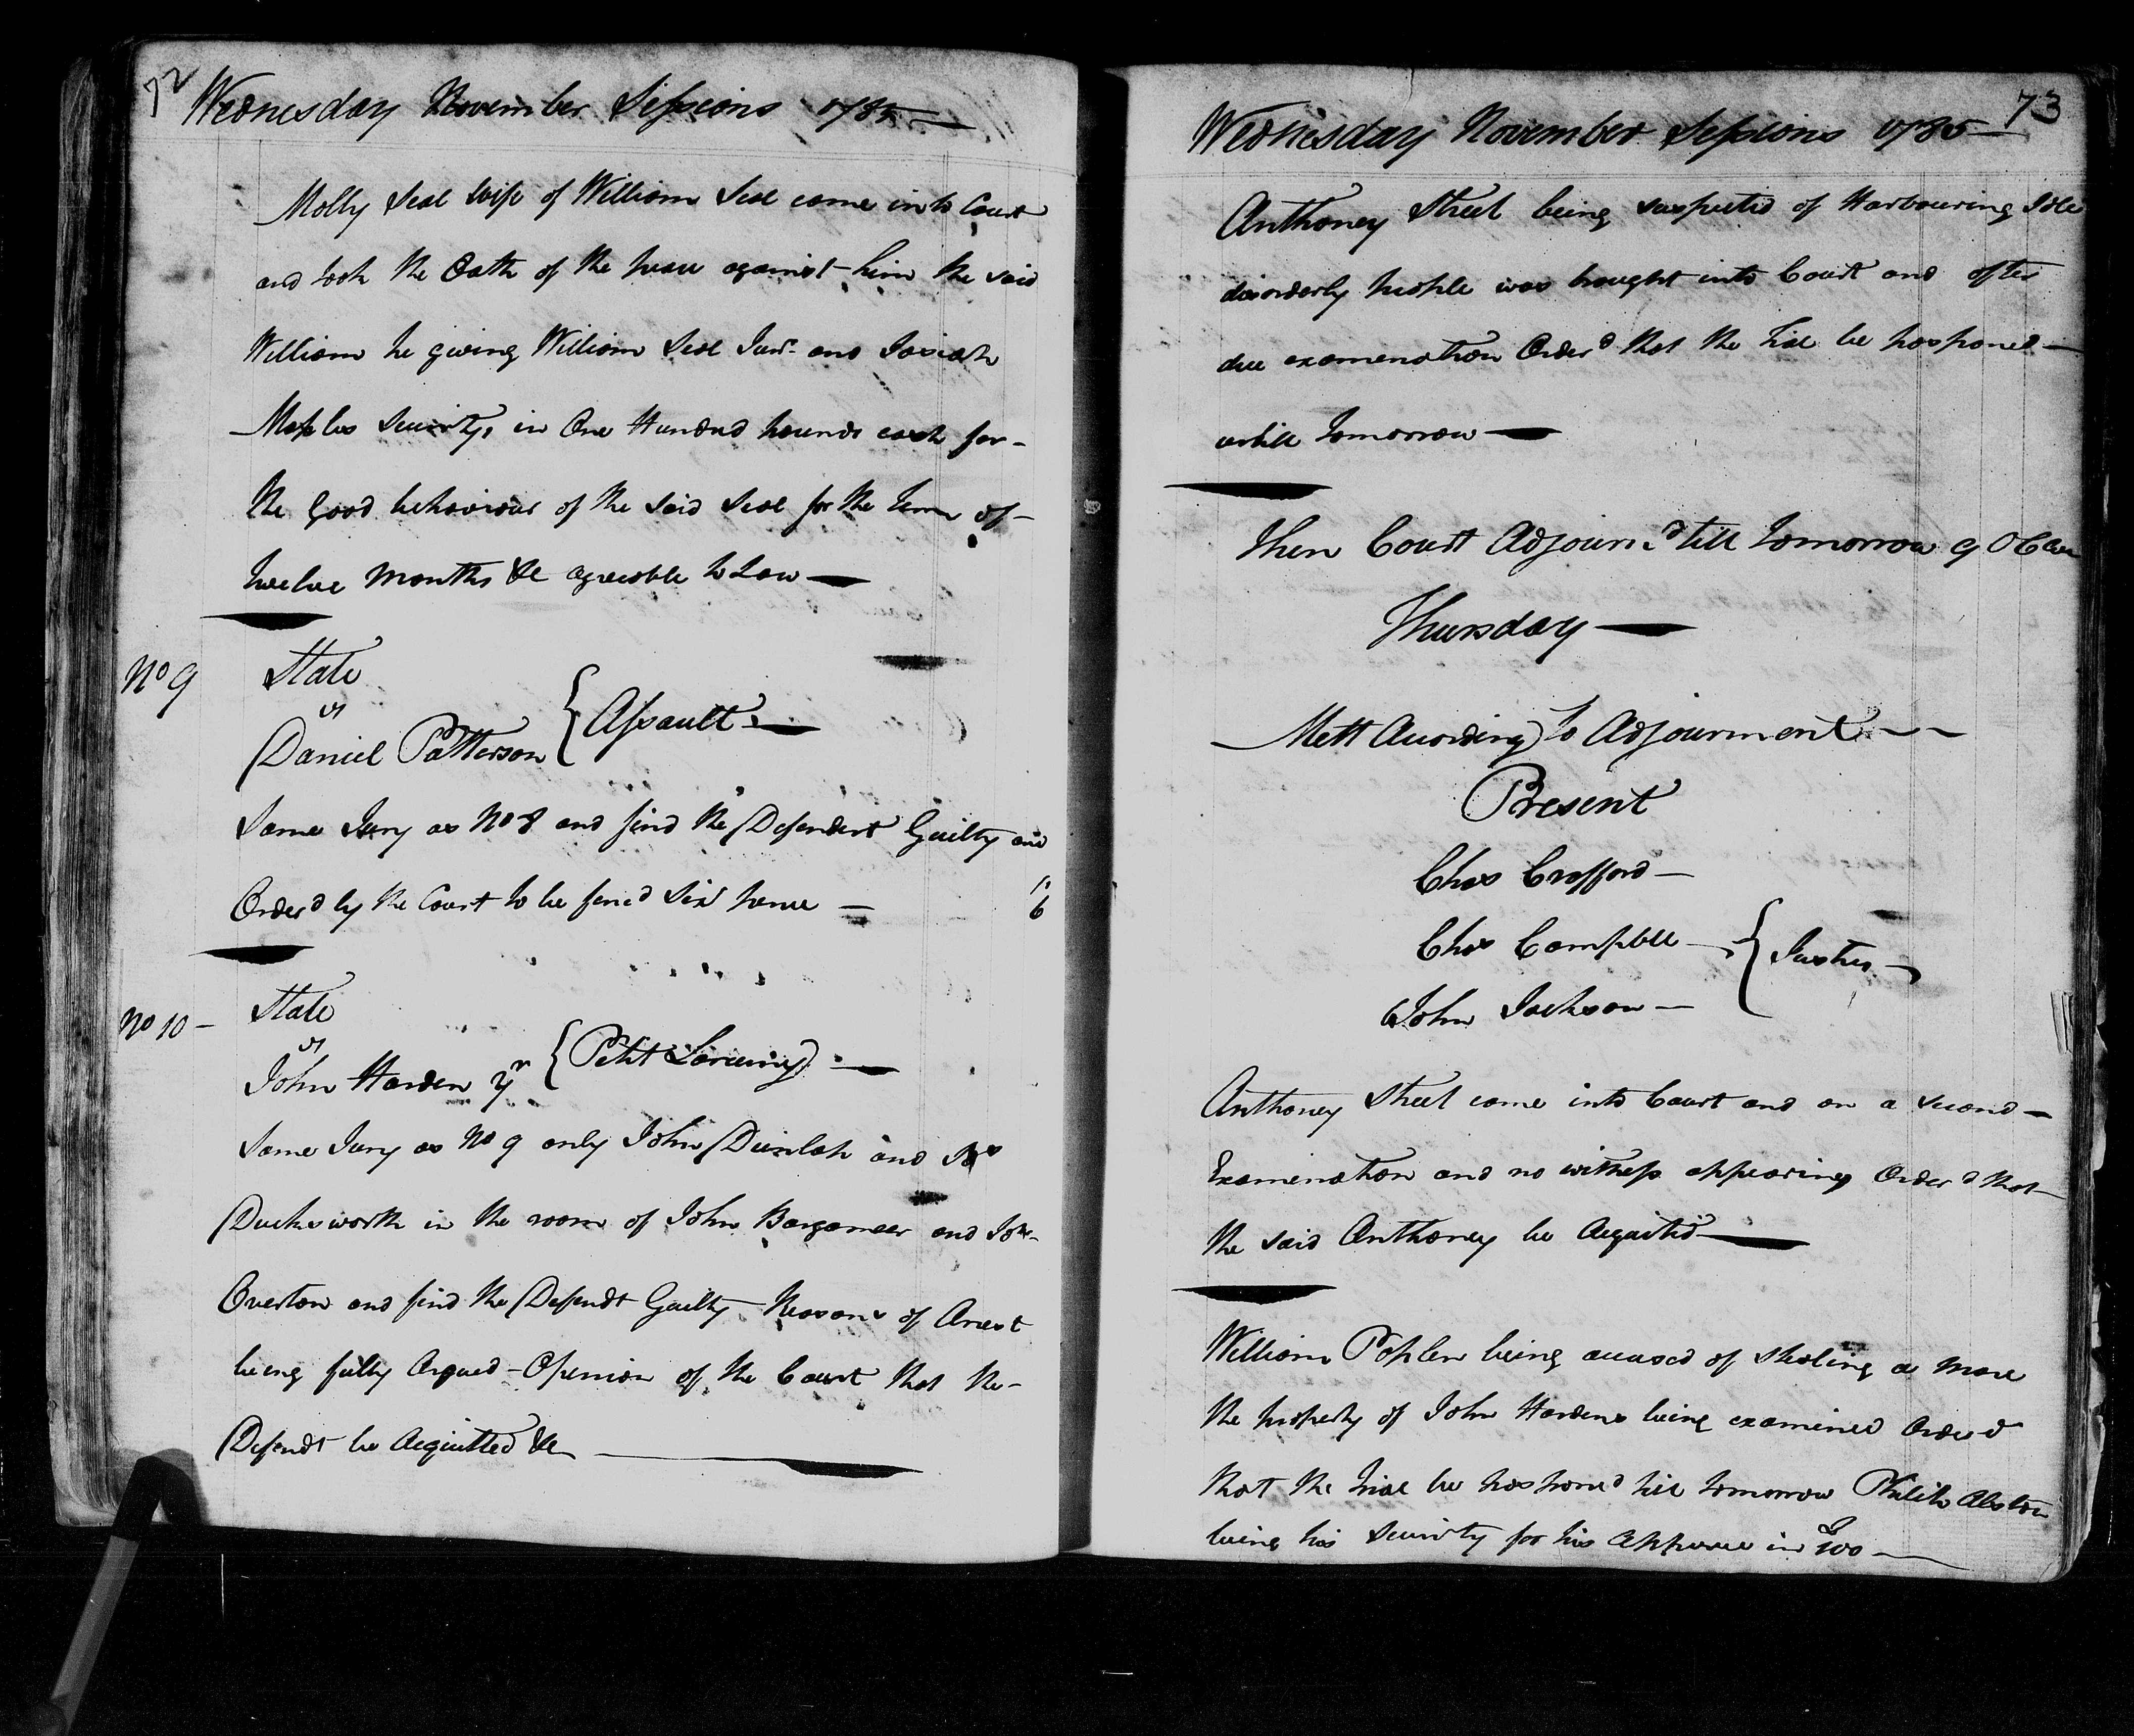 72
Wednesday November Sessions 1785
Molly Seal Wife of William Seal came into Court
and took the Oath of the peace against him the said
William he giving William Seal Junr. and Josiah
Maples Security, in One Hundred pounds cash for
the Good behaviour of the said Seal for the term of
twelve Months &c agreeable to Law
No 9 State
vs
Daniel Patterson { Assault
Same Jury as No 8 and find the Defendent Guilty and
Order'd by the Court to be fined Six pence — 6
No 10 - State
vs
John Harden Jr { Petit Larceny
Same Jury as No 9 only John Dunlap and
Ducksworth in the room of John Bargameer and Jon.
Overton and find the Defendt Guilty Reasons of Arrest
being fully Argued - Openion of the Court that the
Defendt be Acquitted &c
73
Wednesday November Sessions 1785
Anthoney Street being suspected of Harbouring Idle
disorderly people was brought into Court and after
due examenation Order'd that the Trial be posponed
untill tomorrow
Then Court Adjourn'd till tomorrow 9 OClock
Thursday
Mett According to Adjourment
Present
Chas Crafford
Chas Campbell } Justices
John Jackson
Anthoney Street came into Court and on a second
Examenation and no witness appearing Order'd that
the said Anthoney be Acquited
William Poplen being accused of stealing a Mare
the property of John Hardens being examined Order'd
that the trial be posponed till tomorrow Philip Alston
being his Security for his Appearance in £100